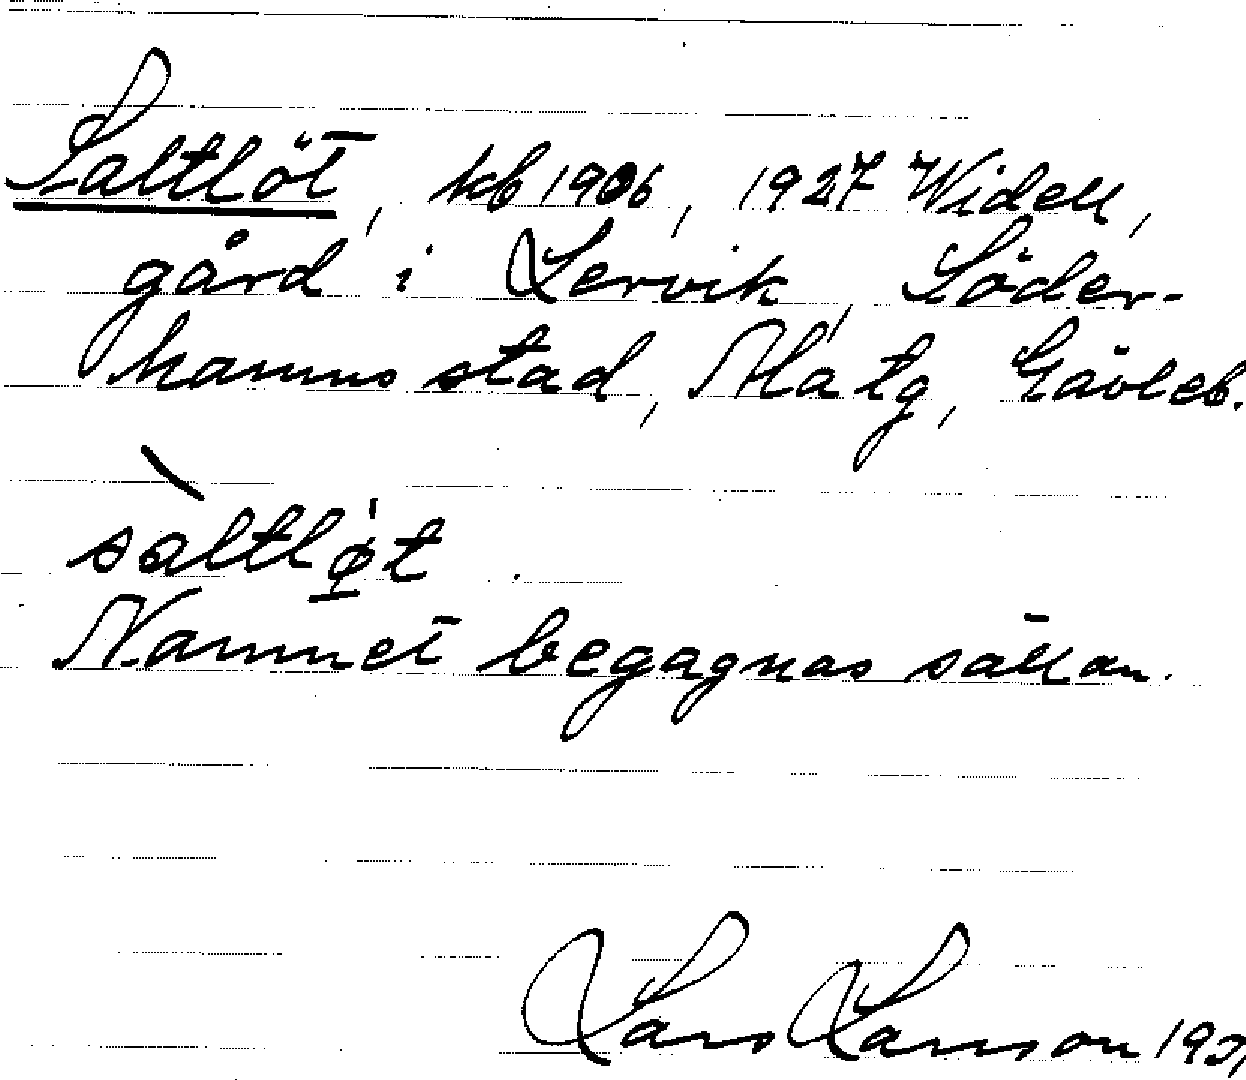 Saltlöt, kb 1906, 1927 Widell,
gård i Lervik, Söder-
hamns stad, Ala tg, Gävleb.
sàltlø̱t
Namnet begagnas sällan.
Lars Larsson